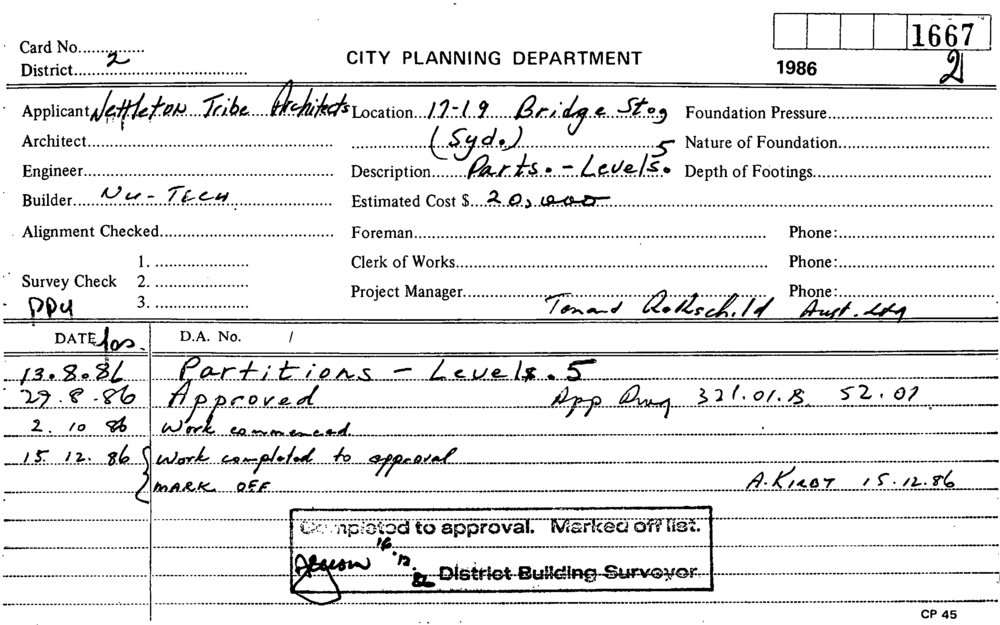 1667
Card No.
2
District
CITY PLANNING DEPARTMENT
1986
2
Applicant Nettleton Tribe Architects
Location 17-19 Bridge St
Foundation Pressure
Architect
(Syd.)
Nature of Foundation
5
Engineer
Description Parts. - Levels.
Depth of Footings
Builder Nu-Tech
Estimated Cost $ 20,000
Alignment Checked
Foreman
Phone:
1.
Clerk of Works
Phone:
Survey Check 2.
3.
Project Manager
Phone:
Tenant Rothschild Aust. Ltd
DATE
D.A. No. /
13.8.86 Partitions - Levels. 5
29.8.86 Approved App Dwg 321.01.B 52.01
2. 10 86 Work commenced.
15. 12. 86 Work completed to approval
MARK OFF A. KIRBY 15.12.86
Completed to approval. Marked off list.
16.12.86 District Building Surveyor
CP 45